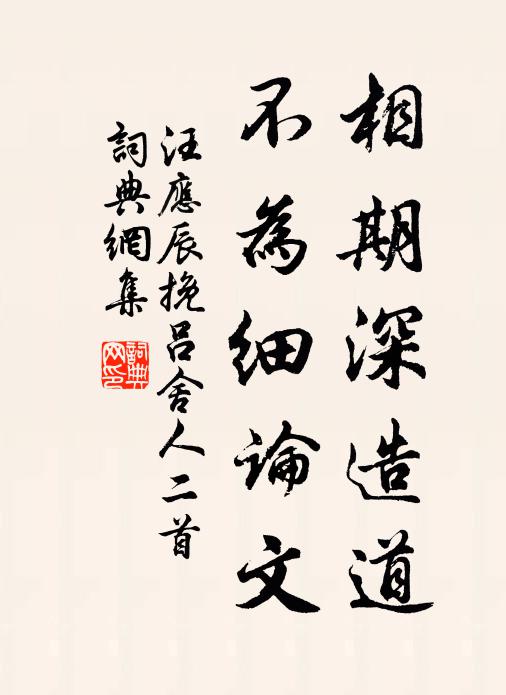 相期深造道
不為細論文
汪應辰挽呂舍人二首
詞典網集
詞典網印